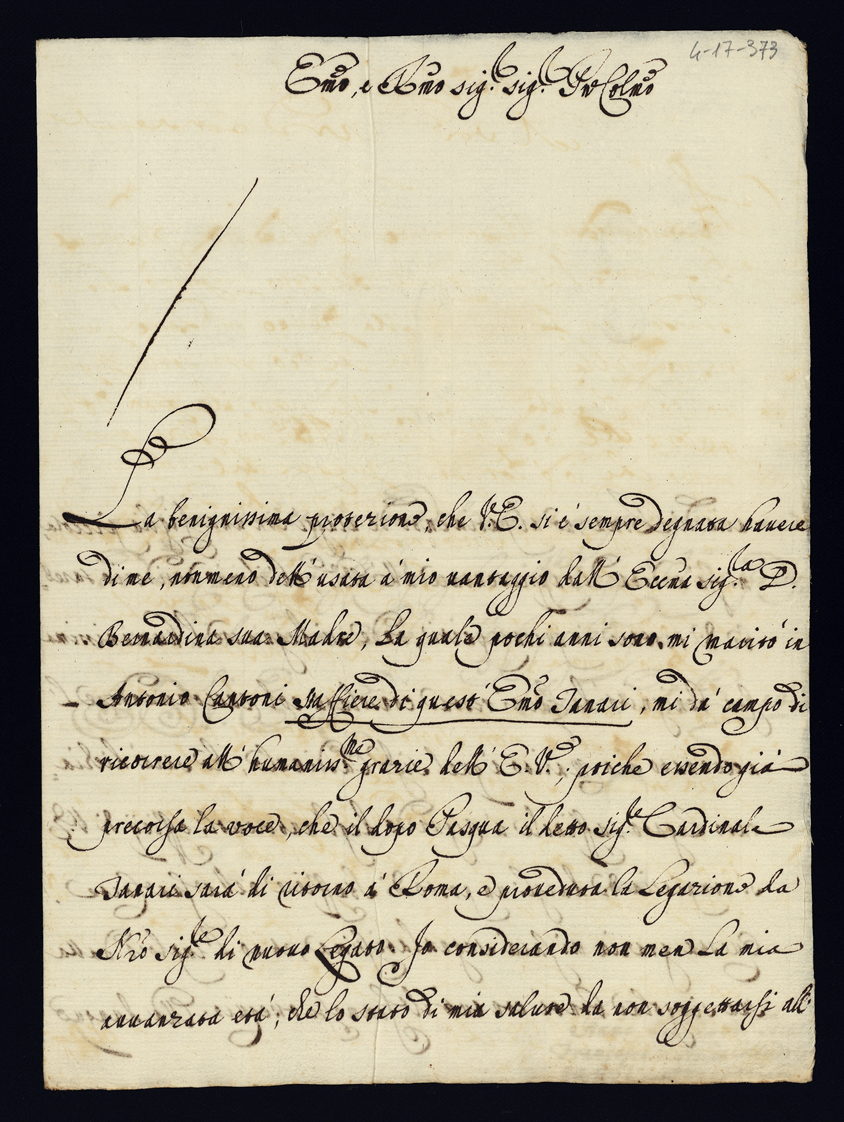 4-17-373
Emo, e Rmo sig.r sig.r Pne Colmo
La benignissima protezione, che V.E. si é sempre degnata havere
di me, non meno dell'usata á mio vantaggio dall'Eccma sig.ra D.
Bernardina sua Madre, la quale pochi anni sono mi maritó in
Antonio Cantoni staffiere di quest'Emo Tanari, mi dá campo di
ricorrere all'humaniss.me grazie dell'E.V., poiche essendo giá
precorsa la voce, che il dopo Pasqua il detto sig.r Cardinale
Tanari sará di ritorno á Roma, e proveduta la Legazione da
Nro sig.re di nuovo Legato. Io considerando non men la mia
avvanzata etá, che lo stato di mia salute da non soggettarsi all'